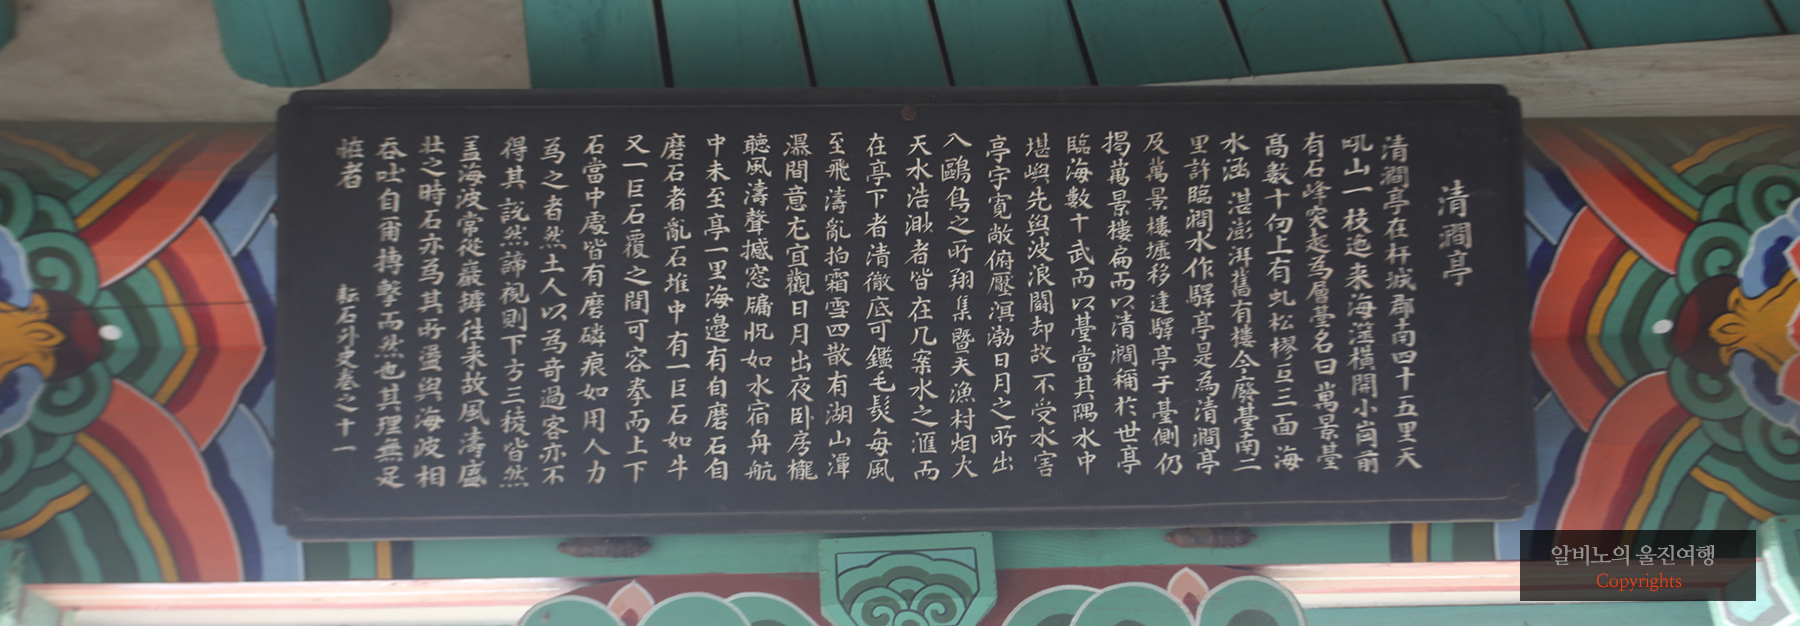 清澗亭
清澗亭在杆城郡南四十五里天
吼山一枝迤来海滋橫開小崗前
有石峰突起為層臺名曰萬景臺
高數十仞上有虬松樛亘三面海
水涵湛澎湃舊有樓今廢臺南二
里許臨澗水作驛亭是為清澗亭
及萬景樓墟移建驛亭于臺側仍
揭萬景樓扁而以清澗稱於世亭
臨海數十武而以臺當其隅水中
堪輿先與波浪鬪却故不受水害
亭宇寬敞俯壓溟渤日月之所出
入鷗鳧之所翔集曁夫漁村烟火
天水浩渺者皆在几案水之滙而
在亭下者清徹底可鑑毛髮每風
至飛濤亂拍霜雪四散有湖山潭
瀑間意尤宜觀日月出夜卧房櫳
聽風濤聲撼窓牖怳如水宿舟航
中未至亭一里海邊有自磨石自
磨石者亂石堆中有一巨石如牛
又一巨石覆之間可容拳而上下
石當中處皆有磨磷痕如用人力
為之者然土人以為奇過客亦不
得其說然諦視則下方三稜皆然
盖海波常從巖罅往来故風濤盛
壯之時石亦為其所盪與海波相
吞吐自爾搏擊而然也其理無足
恠者 耘石外史卷之十一
알비노의 울진여행
Copyrights